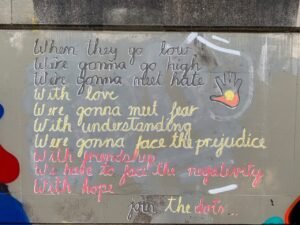 When they go low
We're gonna go high
We're gonna meet hate
With love
We're gonna meet fear
With understanding
We're gonna face the prejudice
With friendship
We have to face the negativity
With hope
join the dots...